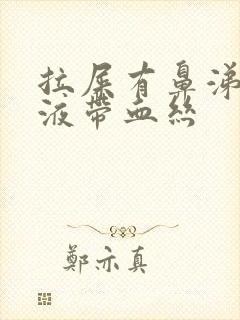 拉屎有鼻涕
液帶血絲
鄭亦真